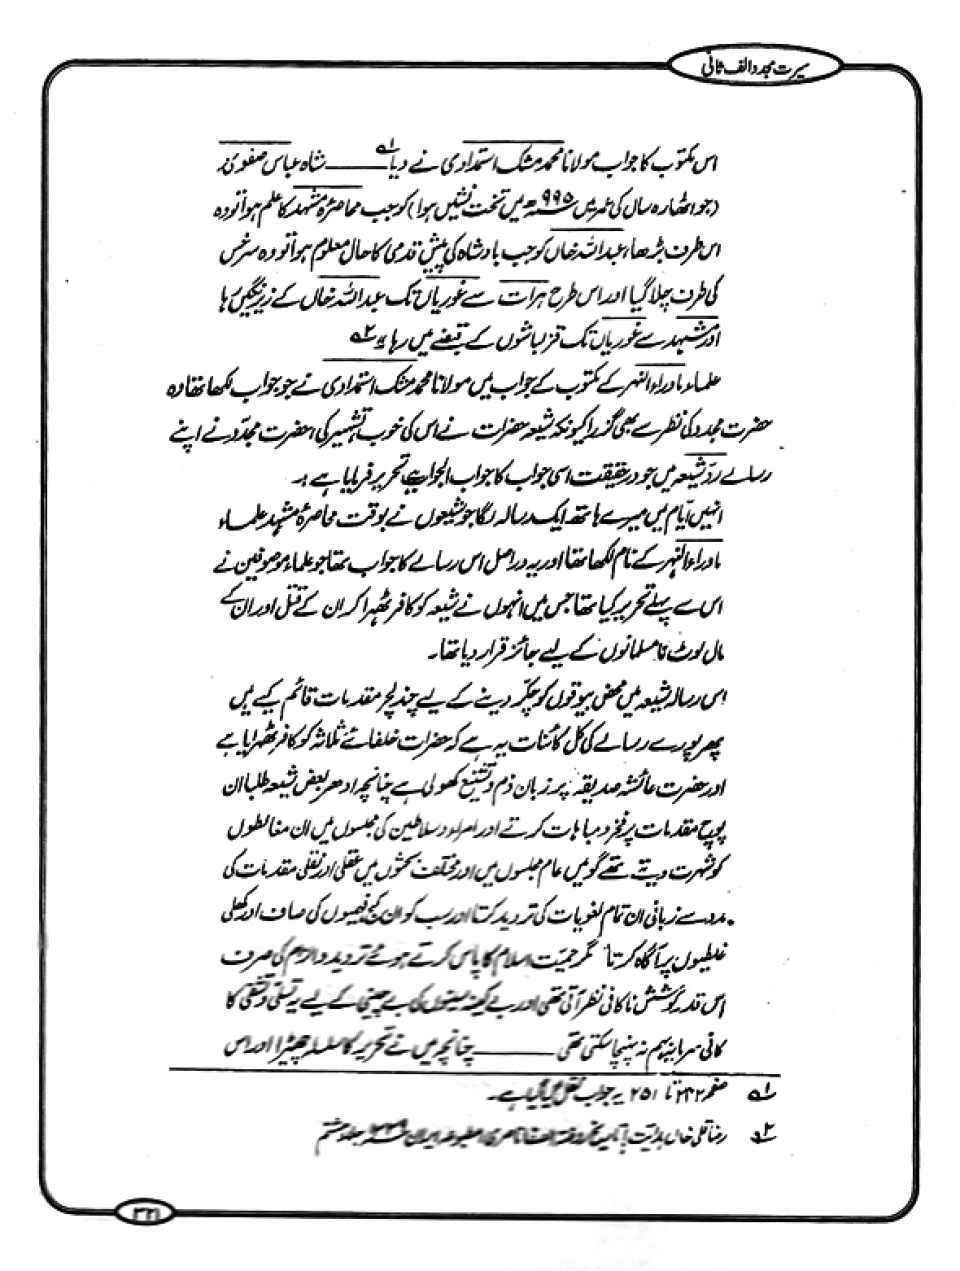 سیرت مجدد الف ثانی
اس مکتوب کا جواب مولانا محمد مشک استمدادی نے دیا ۱؎ ——— شاہ عباس صفوی
(جو اٹھارہ سال کی عمر میں ۹۹۵ھ میں تخت نشیں ہوا) کو جب محاصرۂ مشہد کا علم ہوا تو وہ
اس طرف بڑھا، عبداللہ خاں کو جب بادشاہ کی پیش قدمی کا حال معلوم ہوا تو وہ سرخس
کی طرف چلا گیا اور اس طرح ہرات سے غوریاں تک عبداللہ خاں کے زیر نگیں رہا
اور مشہد سے غوریاں تک قزلباشوں کے قبضے میں رہا ۲؎
علماء ماوراء النہر کے مکتوب کے جواب میں مولانا محمد مشک استمدادی نے جو جواب لکھا تھا وہ
حضرت مجدد کی نظر سے بھی گذرا کیونکہ شیعہ حضرات نے اس کی خوب تشہیر کی، حضرت مجدد نے اپنے
رسالے ردّ شیعہ میں جو درحقیقت اسی جواب کا جواب الجواب ہے تحریر فرمایا ہے :۔
انہیں ایّام میں میرے ہاتھ ایک رسالہ لگا جو شیعوں نے بوقت محاصرۂ مشہد علماء
ماوراء النہر کے نام لکھا تھا اور یہ دراصل اس رسالے کا جواب تھا جو علماء موصوفین نے
اس سے پہلے تحریر کیا تھا جس میں انہوں نے شیعہ کو کافر ٹھہرا کر ان کے قتل اور ان کے
مال لوٹنا مسلمانوں کے لیے جائز قرار دیا تھا۔
اس رسالہ شیعہ میں محض بیوقوں کو چکّر دینے کے لیے چند لچر مقدمات قائم کیے ہیں
پھر پورے رسالے کی کل کائنات یہ ہے کہ حضرات خلفائے ثلاثہ کو کافر ٹھہرایا ہے
اور حضرت عائشہ صدیقہ پر زبان ذم و تشنیع کھولی ہے چنانچہ ادھر بعض شیعہ طلبا ان
پوچ مقدمات پر فخر و مباہات کرتے اور امراء و سلاطین کی مجلسوں میں ان مغالطوں
کو شہرت دیتے تھے گو میں عام مجلسوں میں اور مختلف بحثوں میں عقلی اور نقلی مقدمات کی
مدد سے زبانی ان تمام لغویات کی تردید کرتا اور سب کو ان کج فہمیوں کی صاف اور کھلی
غلطیوں پر آگاہ کرتا مگر حمیّت اسلام کا پاس کرتے ہوئے تردید و الزام کی صرف
اس قدر کوشش ناکافی نظر آتی تھی اور بے کینہ سینوں کی بے چینی کے لیے یہ تسلی و تشفی کا
کافی سرمایہ بہم نہ پہنچا سکتی تھی ——— چنانچہ میں نے تحریر کا سلسلہ چھیڑا اور اس
۱؎ صفحہ ۲۴۲ تا ۲۵۱ پر جواب نقل کیا گیا ہے۔
۲؎ رضا قلی خاں ہدایت : تاریخ روضۃ الصفا ناصری مطبوعہ ایران جلد ہشتم
۳۲۱